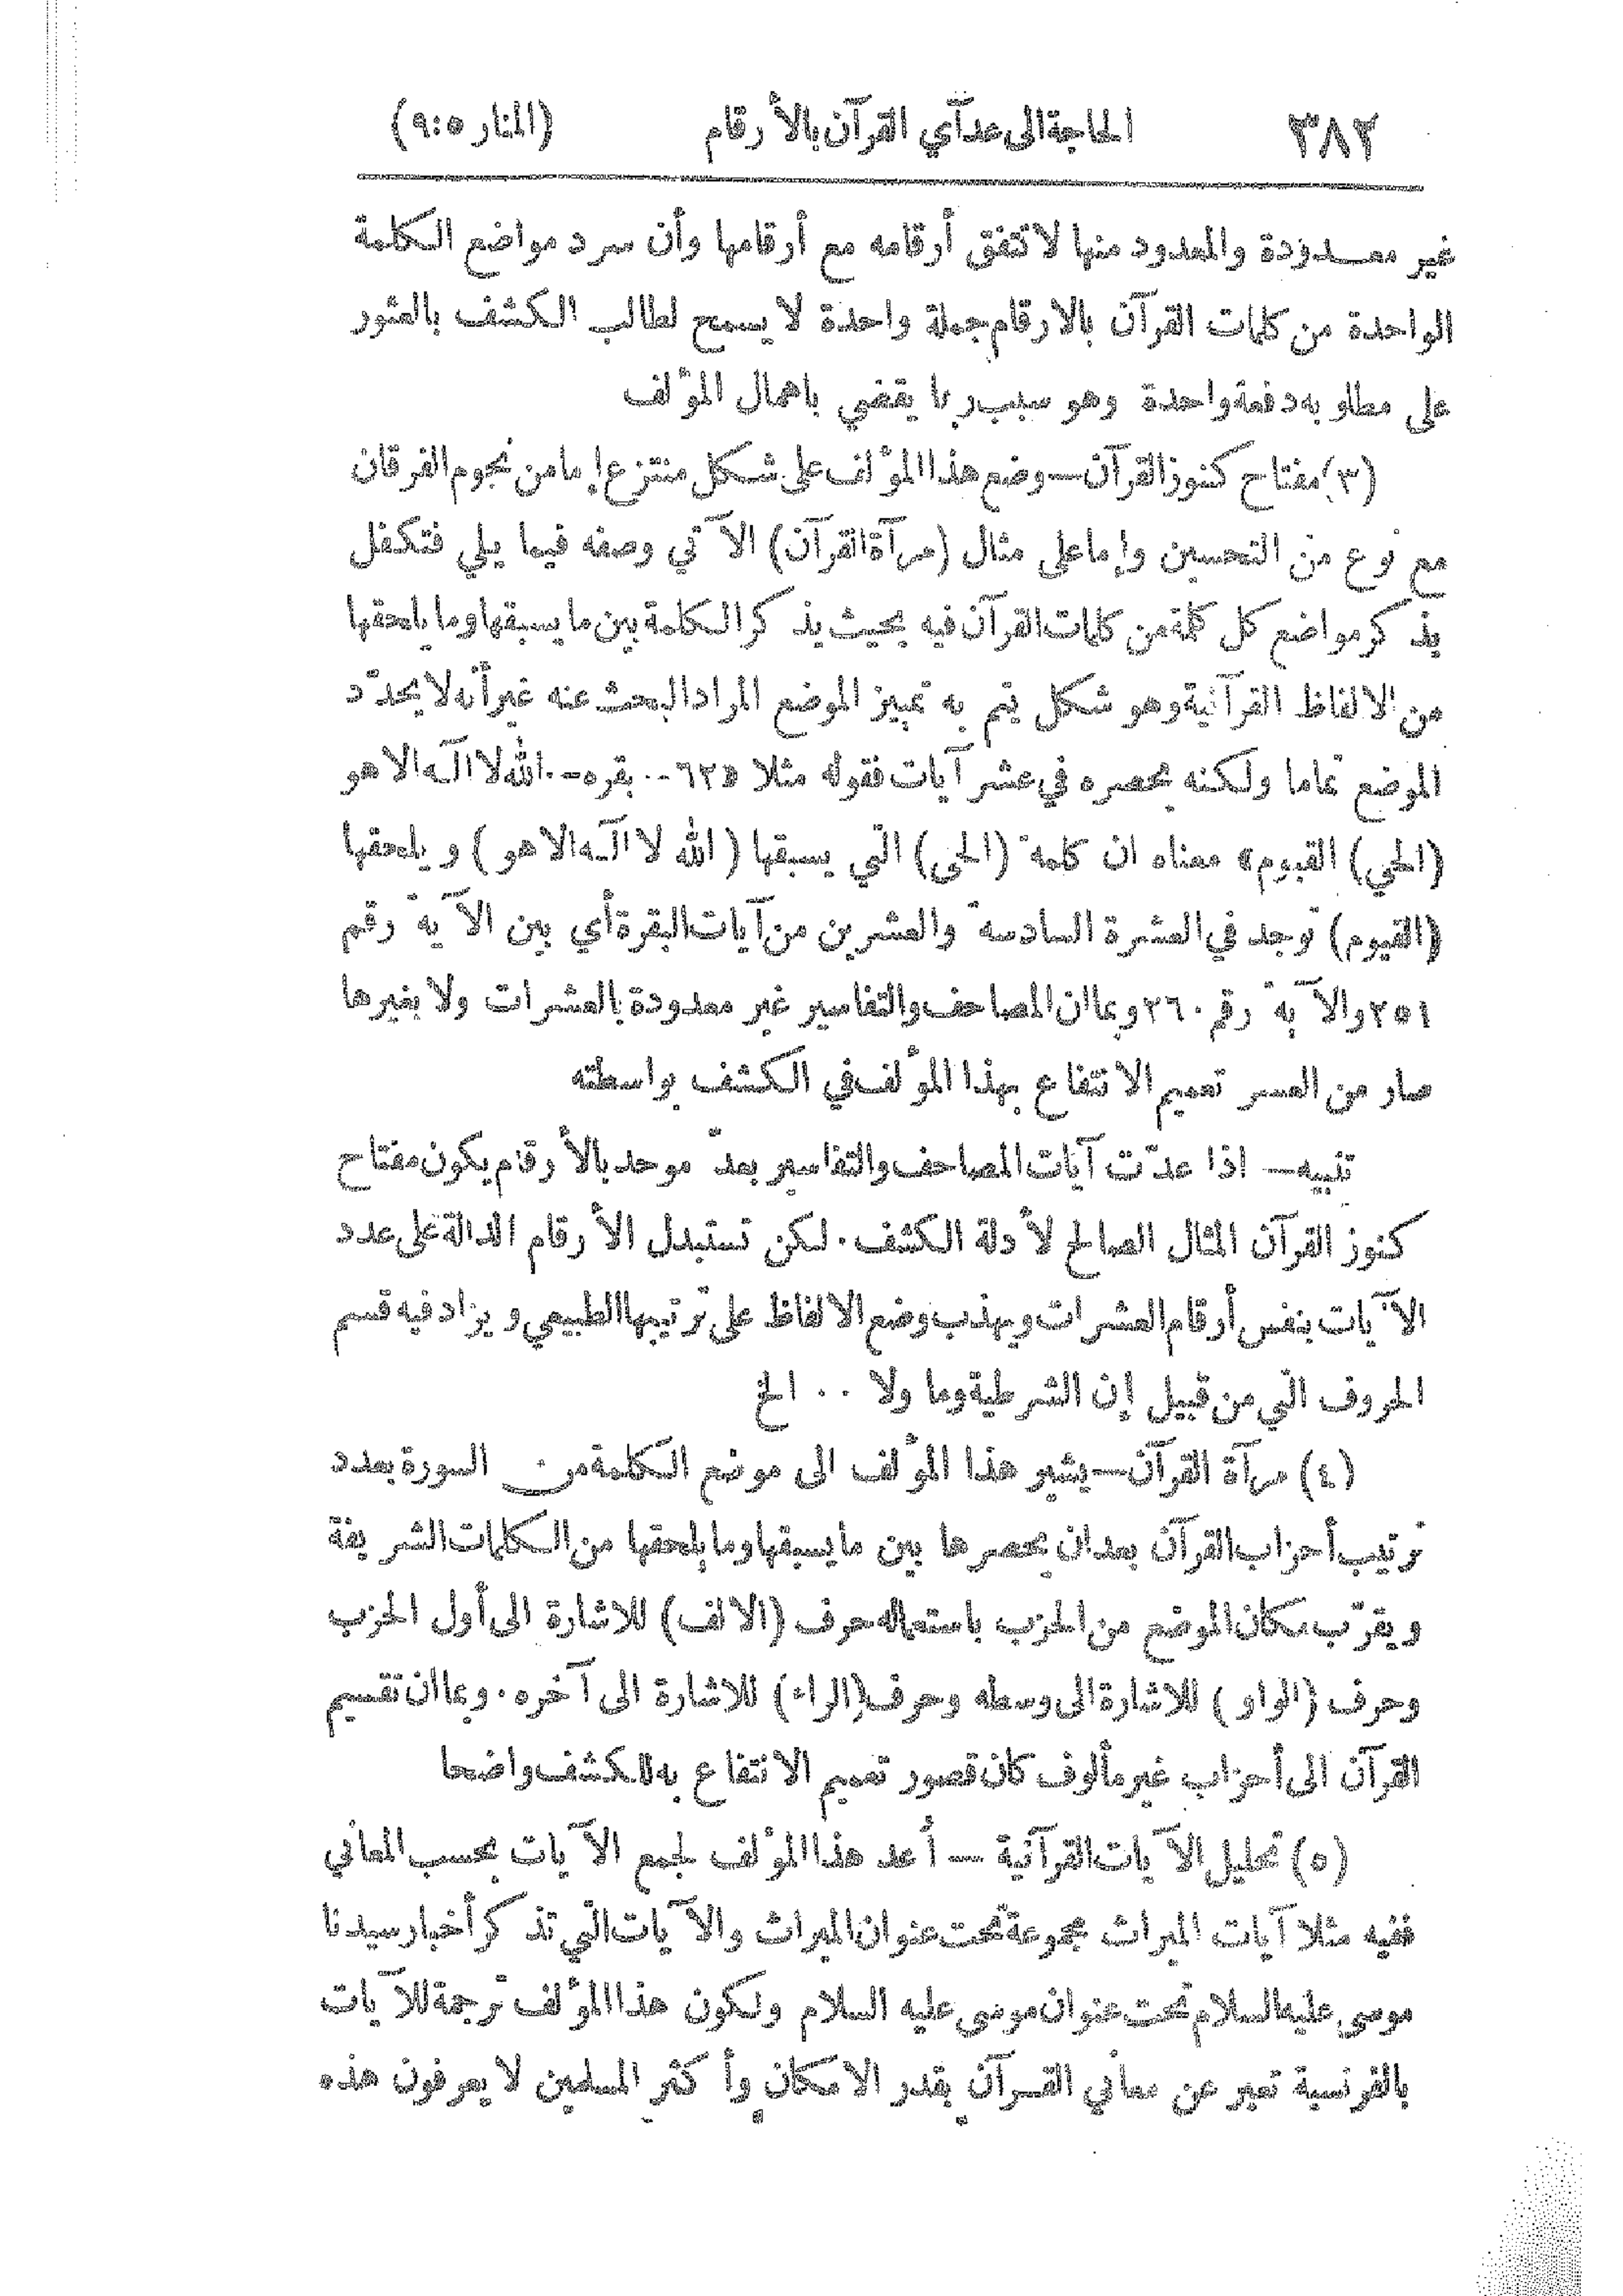 ٣٨٢ الحاجة الى عد آي القرآن بالأرقام (المنار ٥:٩)
غير معدودة والمعدود منها لا تتفق أرقامه مع أرقامها وأن سرد مواضع الكلمة
الواحدة من كلمات القرآن بالارقام جملة واحدة لا يسمح لطالب الكشف بالعثور
على مطلوبه دفعة واحدة وهو سبب ربما يقضي باهمال المؤلف
(٣) مفتاح كنوز القرآن — وضع هذا المؤلف على شكل منتزع إما من نجوم الفرقان
مع نوع من التحسين وإما على مثال (مرآة القرآن) الآتي وصفه فيما يلي فتكفل
بذكر مواضع كل كلمة من كلمات القرآن فيه بحيث يذكر الكلمة بين ما يسبقها وما يلحقها
من الالفاظ القرآنية وهو شكل يتم به تمييز الموضع المراد البحث عنه غير أنه لا يحدّد
الموضع تماما ولكنه يحصره في عشر آيات فقوله مثلا «٦٢ -٠ بقره -٠ الله لا اله الا هو
(الحي) القيوم» معناه ان كلمة (الحي) التي يسبقها (الله لا اله الا هو) ويلحقها
(القيوم) توجد في العشرة السادسة والعشرين من آيات البقرة أي بين الآية رقم
٢٥١ والآية رقم ٢٦٠ وبما ان المصاحف والتفاسير غير معدودة بالعشرات ولا بغيرها
صار من العسر تعميم الانتفاع بهذا المؤلف في الكشف بواسطته
تنبيه — اذا عدّت آيات المصاحف والتفاسير بعدّ موحد بالأرقام يكون مفتاح
كنوز القرآن المثال الصالح لأدلة الكشف. لكن تستبدل الأرقام الدالة على عدد
الآيات بنفس أرقام العشرات ويهذب وضع الالفاظ على ترتيبها الطبيعي ويزاد فيه قسم
الحروف التي من قبيل إن الشرطية وما ولا ٠٠ الخ
(٤) مرآة القرآن — يشير هذا المؤلف الى موضع الكلمة من السورة بعدد
ترتيب أحزاب القرآن بعد ان يحصرها بين ما يسبقها وما يلحقها من الكلمات الشريفة
ويقرّب مكان الموضع من الحزب باستعماله حرف (الالف) للاشارة الى أول الحزب
وحرف (الواو) للاشارة الى وسطه وحرف (الراء) للاشارة الى آخره. وبما ان تقسيم
القرآن الى أحزاب غير مألوف كان قصور تعميم الانتفاع به للكشف واضحا
(٥) تحليل الآيات القرآنية — أعد هذا المؤلف لجمع الآيات بحسب المعاني
ففيه مثلا آيات الميراث مجموعة تحت عنوان الميراث والآيات التي تذكر أخبار سيدنا
موسى عليه السلام تحت عنوان موسى عليه السلام ولكون هذا المؤلف ترجمة للآيات
بالفرنسية تعبر عن معاني القرآن بقدر الامكان وأكثر المسلمين لا يعرفون هذه